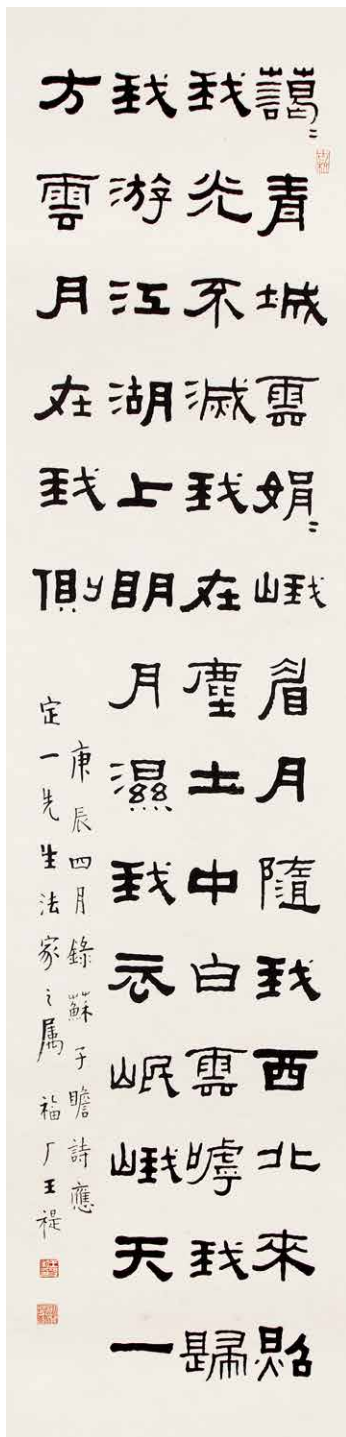 藹〻青城雲娟〻峨眉月隨我西北來照
我光不滅我在塵土中白雲嘑我歸
我游江湖上明月濕我衣岷峨天一
方雲月在我俱
庚辰四月錄蘇子瞻詩應
定一先生法家之属 福厂王禔